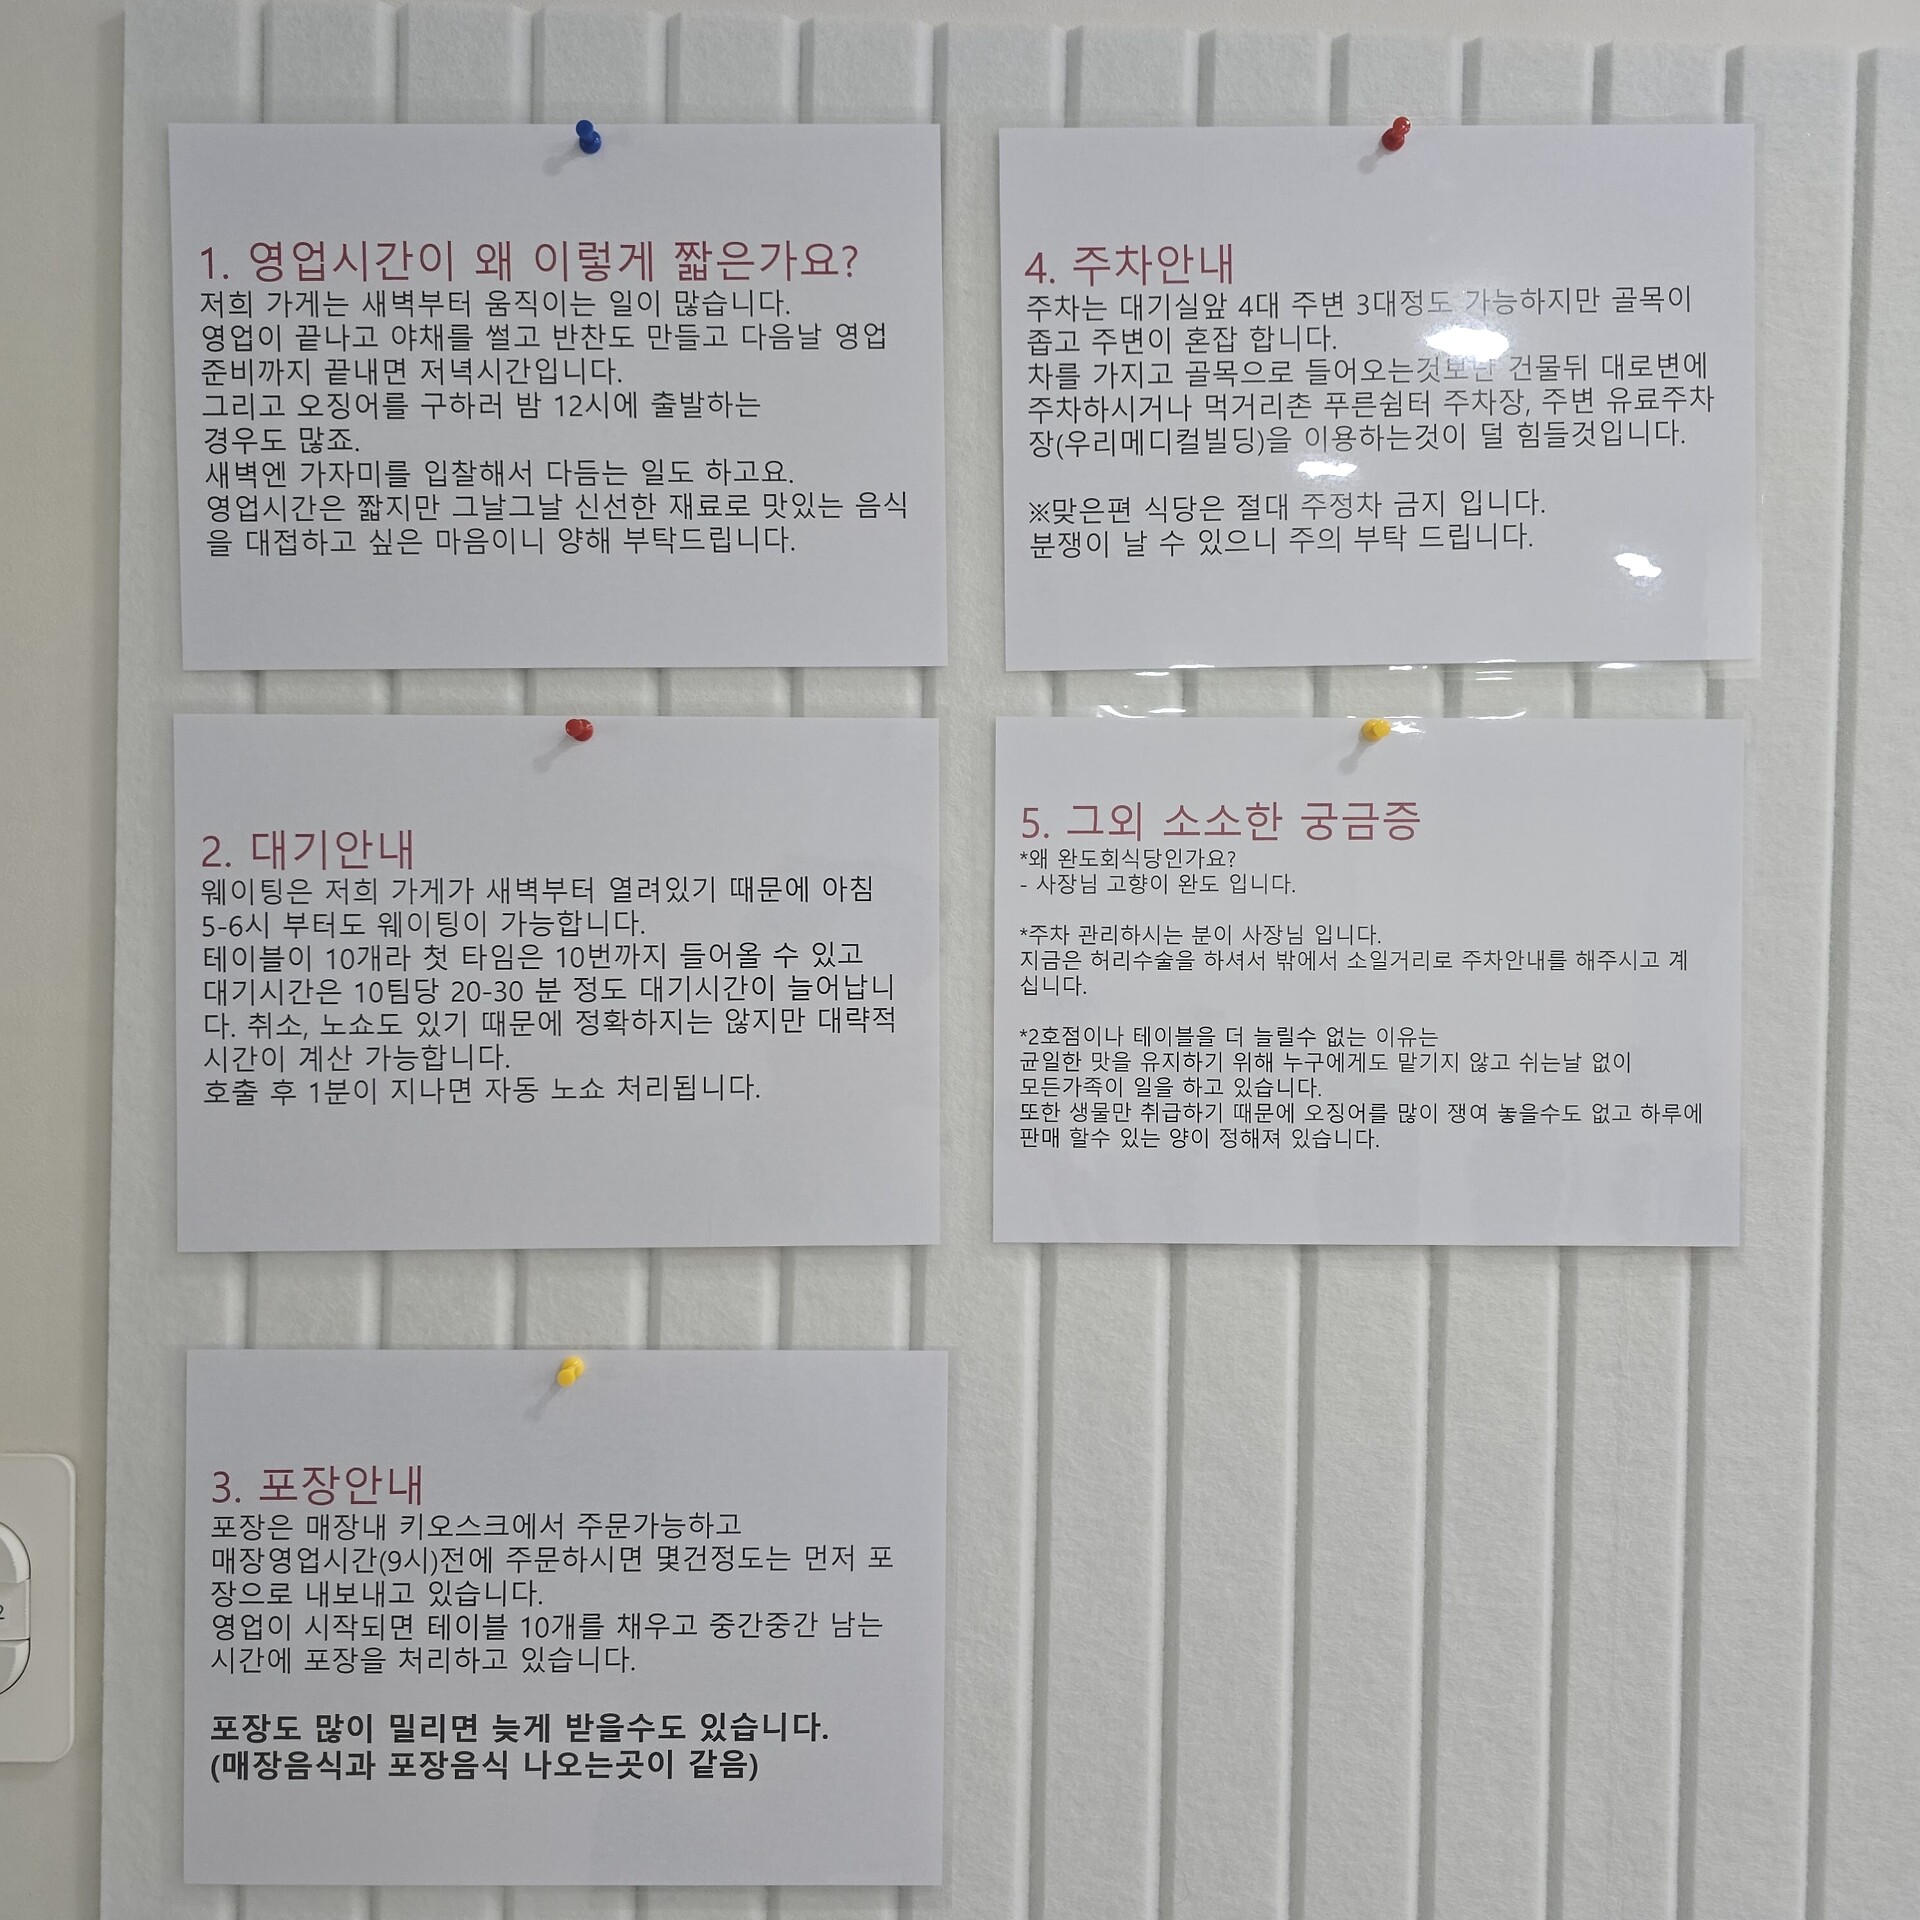 1. 영업시간이 왜 이렇게 짧은가요?
저희 가게는 새벽부터 움직이는 일이 많습니다.
영업이 끝나고 야채를 썰고 반찬도 만들고 다음날 영업
준비까지 끝내면 저녁시간입니다.
그리고 오징어를 구하러 밤 12시에 출발하는
경우도 많죠.
새벽엔 가자미를 입찰해서 다듬는 일도 하고요.
영업시간은 짧지만 그날그날 신선한 재료로 맛있는 음식
을 대접하고 싶은 마음이니 양해 부탁드립니다.
2. 대기안내
웨이팅은 저희 가게가 새벽부터 열려있기 때문에 아침
5-6시 부터도 웨이팅이 가능합니다.
테이블이 10개라 첫 타임은 10번까지 들어올 수 있고
대기시간은 10팀당 20-30 분 정도 대기시간이 늘어납니
다. 취소, 노쇼도 있기 때문에 정확하지는 않지만 대략적
시간이 계산 가능합니다.
호출 후 1분이 지나면 자동 노쇼 처리됩니다.
3. 포장안내
포장은 매장내 키오스크에서 주문가능하고
매장영업시간(9시)전에 주문하시면 몇건정도는 먼저 포
장으로 내보내고 있습니다.
영업이 시작되면 테이블 10개를 채우고 중간중간 남는
시간에 포장을 처리하고 있습니다.
포장도 많이 밀리면 늦게 받을수도 있습니다.
(매장음식과 포장음식 나오는곳이 같음)
4. 주차안내
주차는 대기실앞 4대 주변 3대정도 가능하지만 골목이
좁고 주변이 혼잡 합니다.
차를 가지고 골목으로 들어오는것보단 건물뒤 대로변에
주차하시거나 먹거리촌 푸른쉼터 주차장, 주변 유료주차
장(우리메디컬빌딩)을 이용하는것이 덜 힘들것입니다.
※맞은편 식당은 절대 주정차 금지 입니다.
분쟁이 날 수 있으니 주의 부탁 드립니다.
5. 그외 소소한 궁금증
*왜 완도회식당인가요?
- 사장님 고향이 완도 입니다.
*주차 관리하시는 분이 사장님 입니다.
지금은 허리수술을 하셔서 밖에서 소일거리로 주차안내를 해주시고 계
십니다.
*2호점이나 테이블을 더 늘릴수 없는 이유는
균일한 맛을 유지하기 위해 누구에게도 맡기지 않고 쉬는날 없이
모든가족이 일을 하고 있습니다.
또한 생물만 취급하기 때문에 오징어를 많이 쟁여 놓을수도 없고 하루에
판매 할수 있는 양이 정해져 있습니다.
2